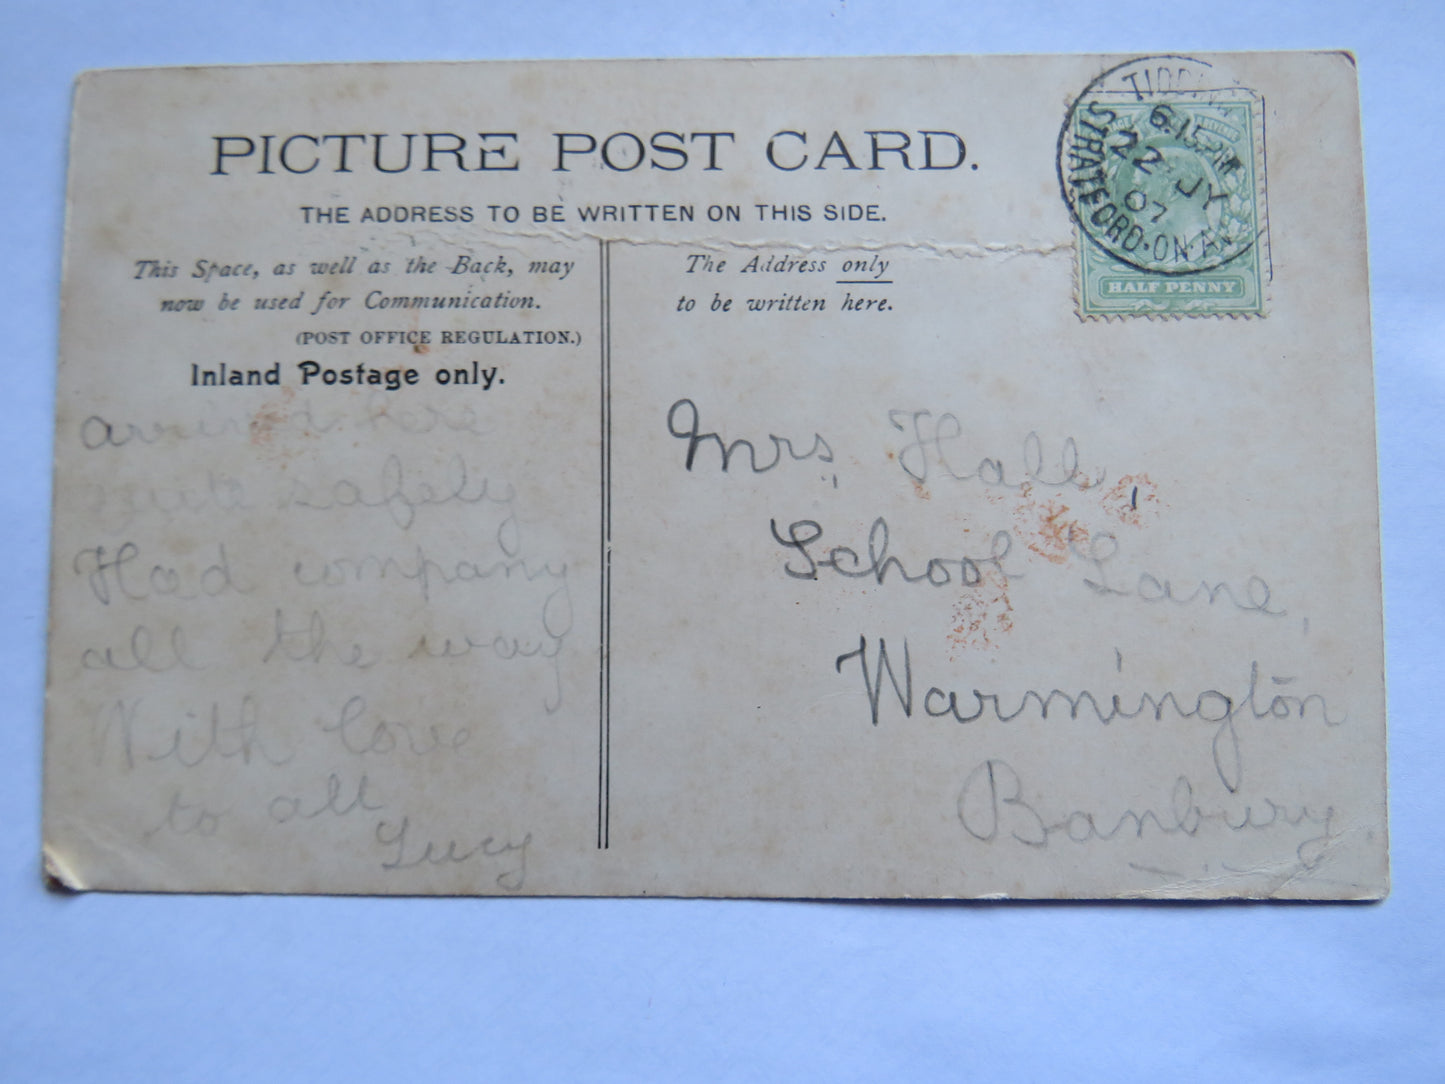 PICTURE POST CARD.
THE ADDRESS TO BE WRITTEN ON THIS SIDE.
This Space, as well as the Back, may
now be used for Communication.
(POST OFFICE REGULATION.)
Inland Postage only.
arrived here
quite safely
Had company
all the way
With love
to all
Lucy
The Address only
to be written here.
Mrs, Hall,
School Lane,
Warmington
Banbury
6.15PM
22 JY
07
STRATFORD·ON·AV
HALF PENNY